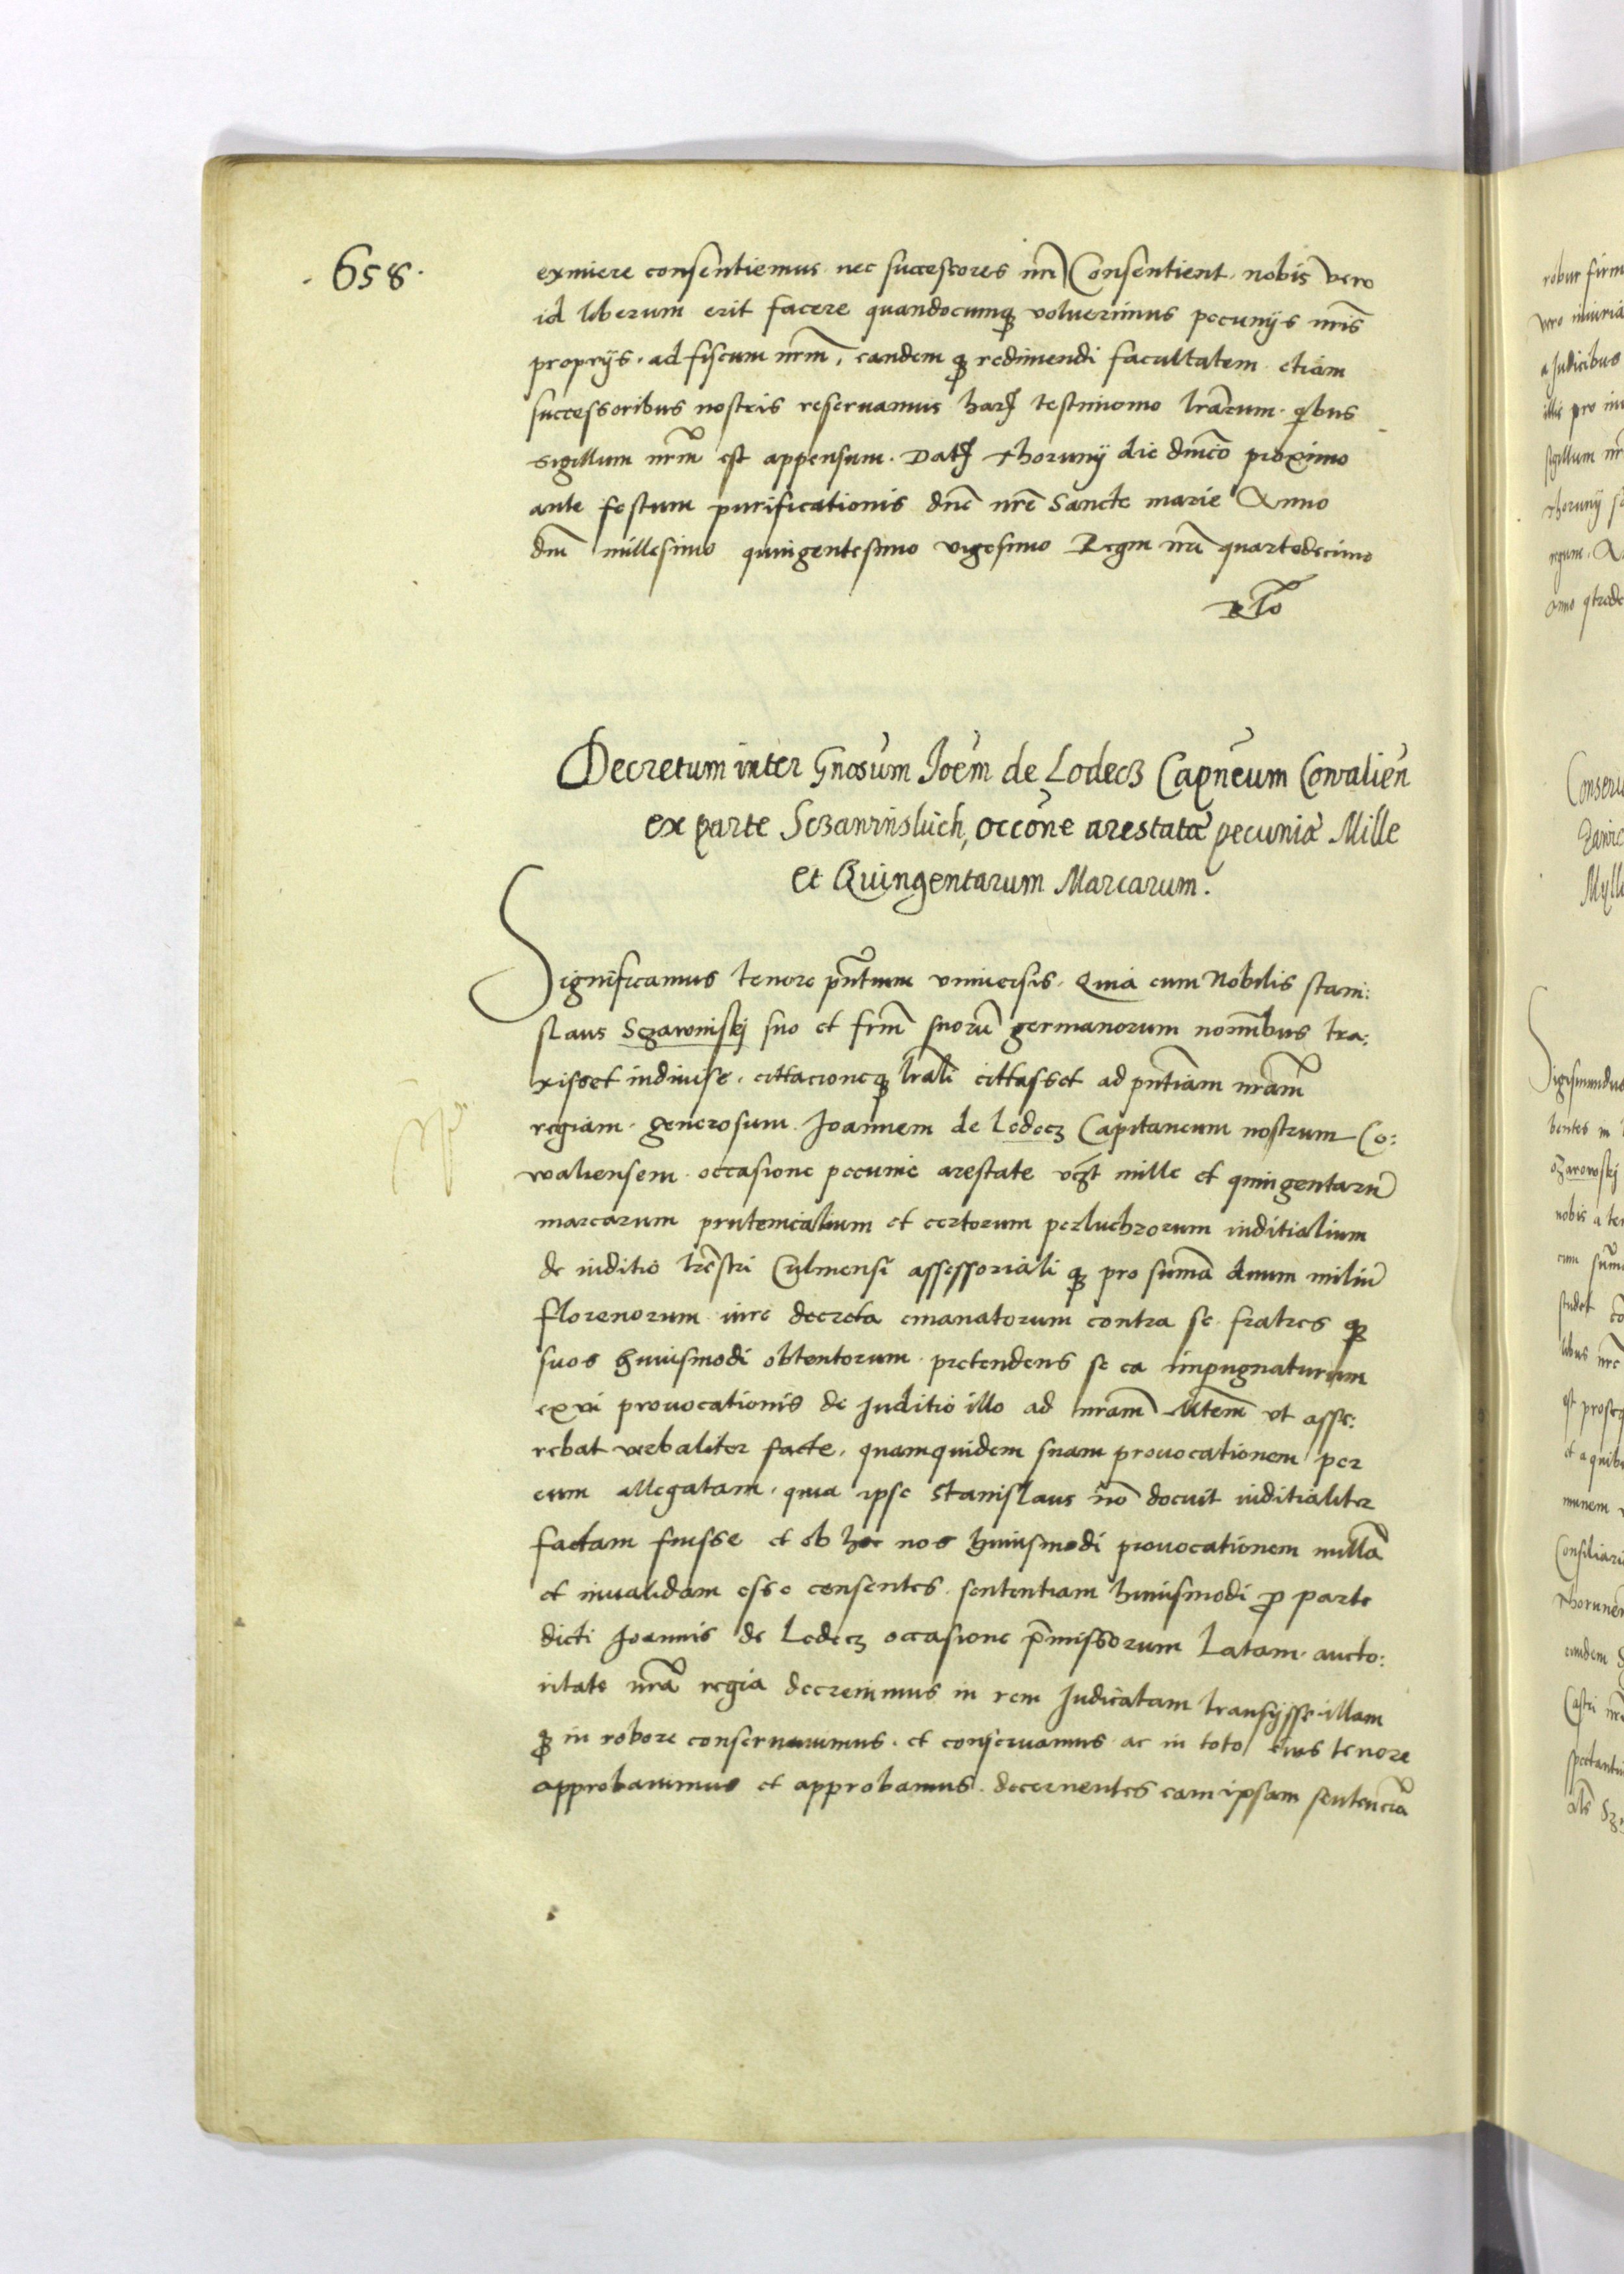 658.
eximere consentiemus nec successores nri Consentient. nobis vero
id liberum erit facere quandocumq voluerimus pecunijs nris
proprijs. ad fiscum nrm, eandem q redimendi facultatem etiam
successoribus nostris reservamus har testimonio lrarum. qbus
sigillum nrm est appensum. Dat Thorunij die dnico proximo
ante festum purificationis dne nre Sancte marie Anno
dni millesimo quingentesimo vigesimo Regni nri quartodecimo
Rlo
Decretum inter Gnosum Joem de Lodecz Capneum Covalien
ex parte Sczawinsluch, occone arestatæ pecuniæ Mille
et Quingentarum Marcarum.
Significamus tenore pntium universis. Quia cum Nobilis stani:
slaus Sczawinskj suo et frm suoru germanorum nominibus tra:
xisset indiuise. cittacioneq lrali cittasset ad pntiam nram
regiam. generosum Joannem de Lodecz Capitaneum nostrum Co:
waliensem occasione pecunie arestate vczt mille et quingentaru
marcarum prutenicalium et certorum perluchrorum iuditialium
de iuditio trestri Culmensi assessoriali q pro suma duum miliu
florenorum iure decreta emanatorum contra se fratres q
suos huiusmodi obtentorum pretendens se ea impugnaturum
ex vi provocationis de Juditio illo ad nram Mtem vt asse:
rebat verbaliter facte, quamquidem suam provocationem per
eum allegatam. quia ipse Stanislaus no docuit iuditialiter
factam fuisse et ob hoc nos huiusmodi provocationem nulla
et invalidam esse censentes sententiam huiusmodi p parte
dicti Joannis de Lodecz occasione pmissorum Latam aucto:
ritate nra regia decrevimus in rem Judicatam transijsse illam
q in robore conservavimus. et conservamus ac in toto eius tenore
approbavimus et approbamus. decernentes eam ipsam sentencia